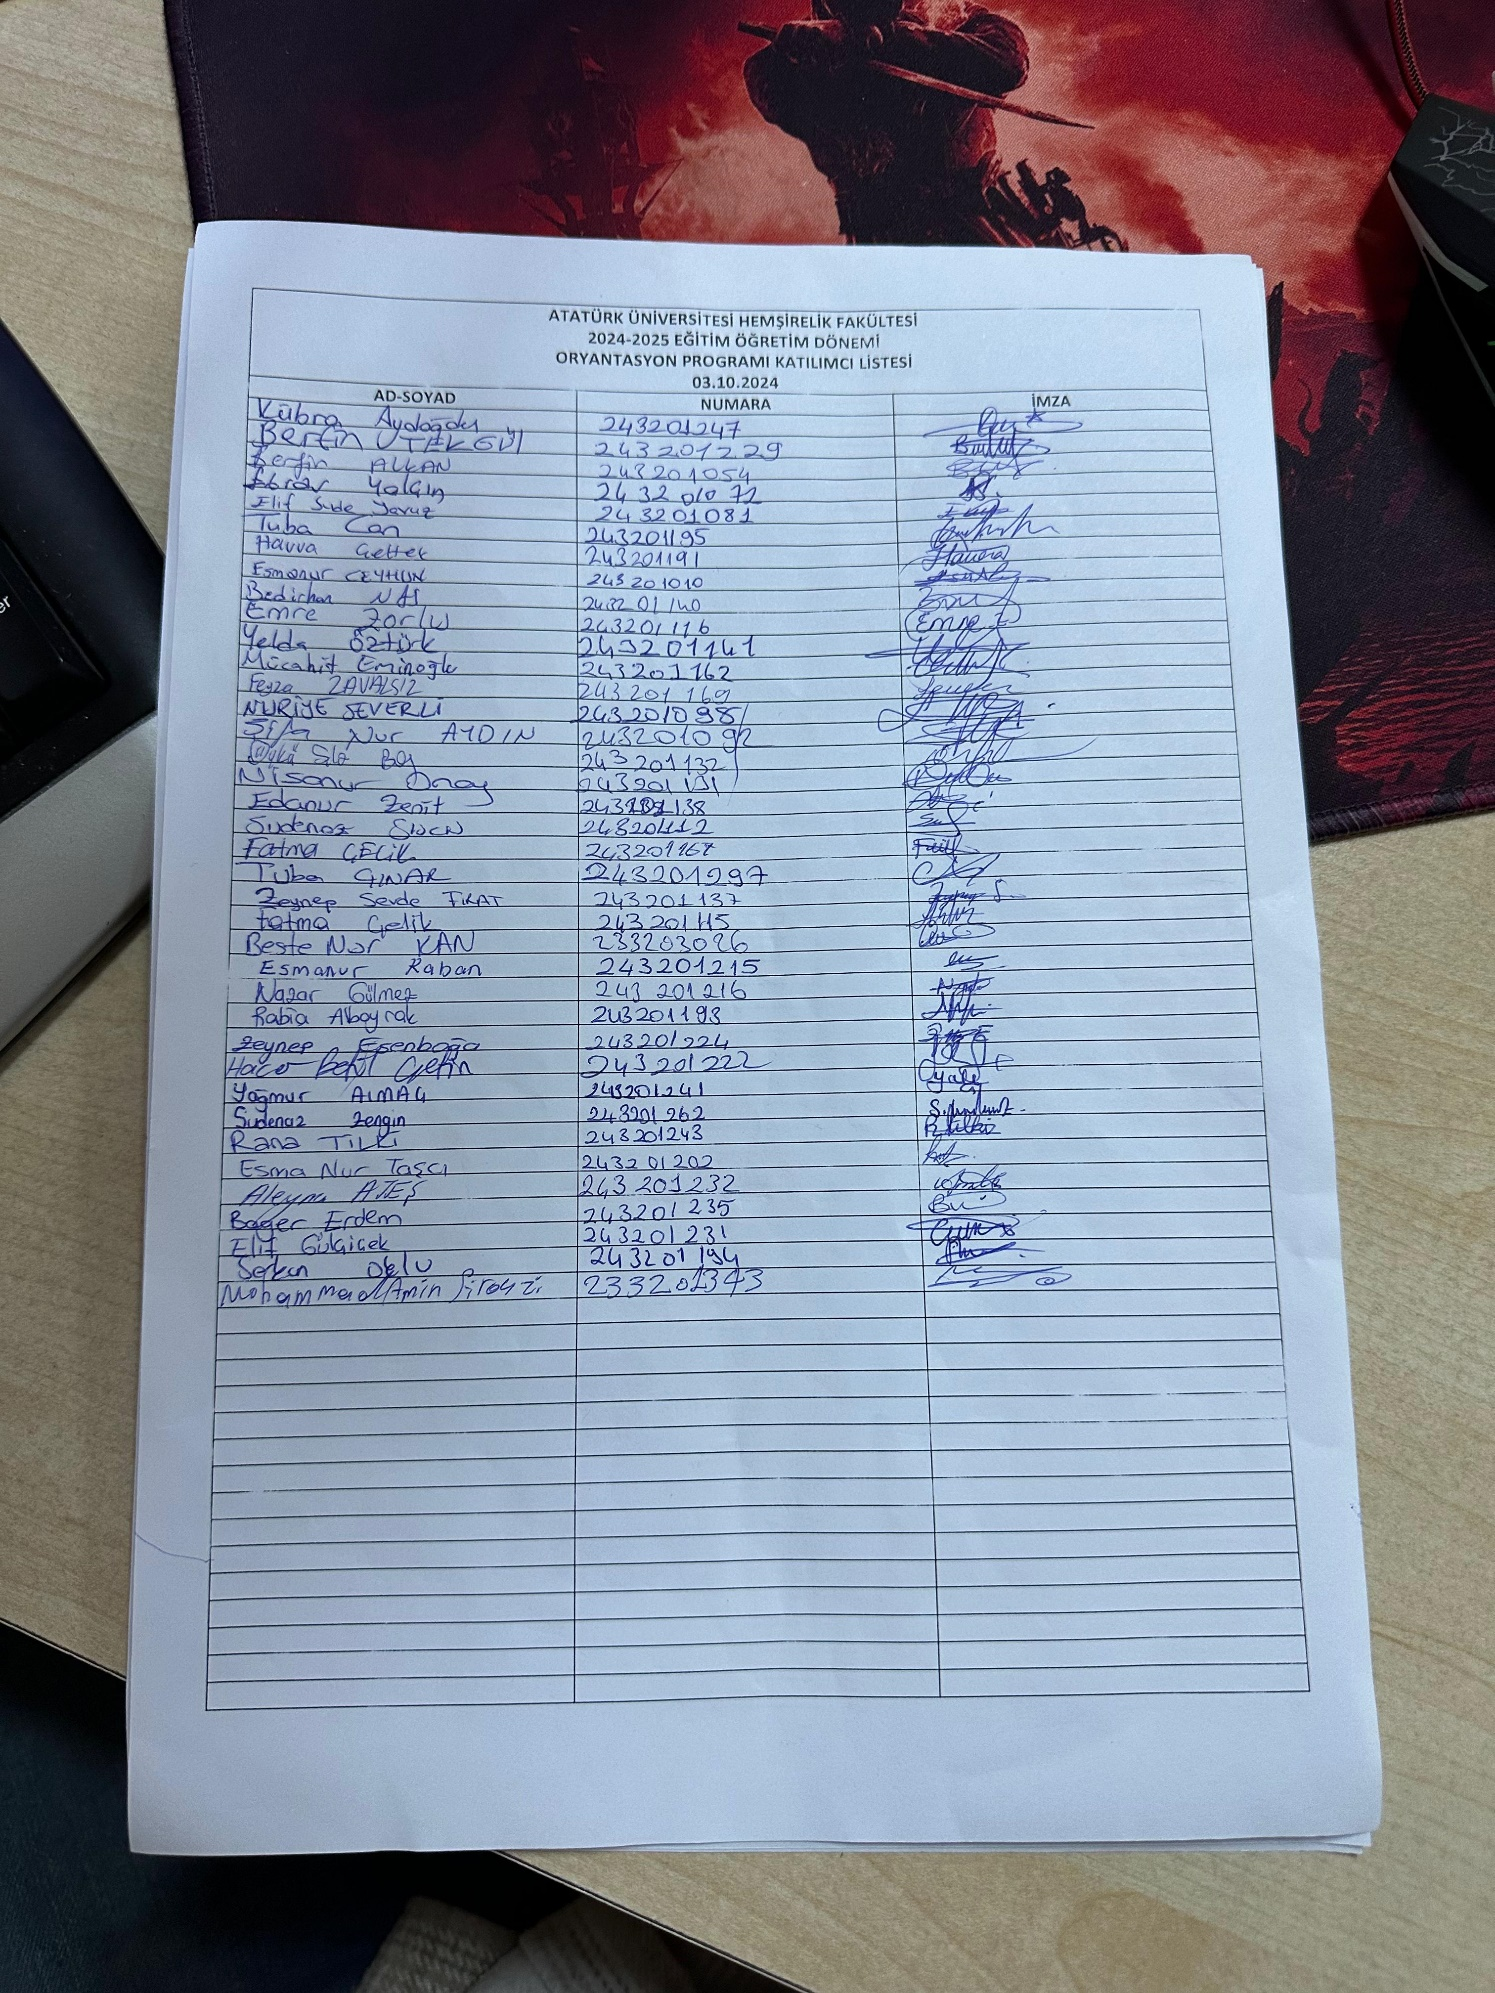 ATATÜRK ÜNİVERSİTESİ HEMŞİRELİK FAKÜLTESİ
2024-2025 EĞİTİM ÖĞRETİM DÖNEMİ
ORYANTASYON PROGRAMI KATILIMCI LİSTESİ
03.10.2024
AD-SOYAD NUMARA İMZA
Kübra Aydoğdu 243201247
Berfin 243201229
Berfin ALKAN 243201054
Ebrar Yalçın 243201072
Elif Sude Yavuz 243201081
Tuba Can 243201195
Havva 243201191 Havva
Esmanur CEYHUN 243201010
Bedirhan NAS 243201140
Emre Zorlu 243201116 Emre
Yelda Öztürk 243201141
Mücahit Eminoğlu 243201162
Feyza ZAVALSIZ 243201169
NURİYE SEVERLİ 243201098
Şifa Nur AYDIN 243201092
243201132
Nisanur Onay 243201131
Edanur Zenit
Sudenaz 243201112
Fatma ÇELİK
Tuba ÇINAR 243201297
Zeynep Sevde FIRAT 243201137
Fatma Çelik 243201115
Beste Nur KAN 233203026
Esmanur Kaban 243201215
Nazar Gülmez 243201216
Rabia Albayrak 243201193
Zeynep Esenboğa 243201224
Hacer Betül Çetin 243201222
Yağmur ALMAÇ 243201241
Sudenaz Zengin 243201262
Rana TİLKİ 243201243 R.tilki
Esma Nur Taşcı 243201202
Aleyna ATEŞ 243201232
Bager Erdem 243201235
Elif Gülçiçek 243201231
Serkan 243201194
Mohammad Amin 233201343